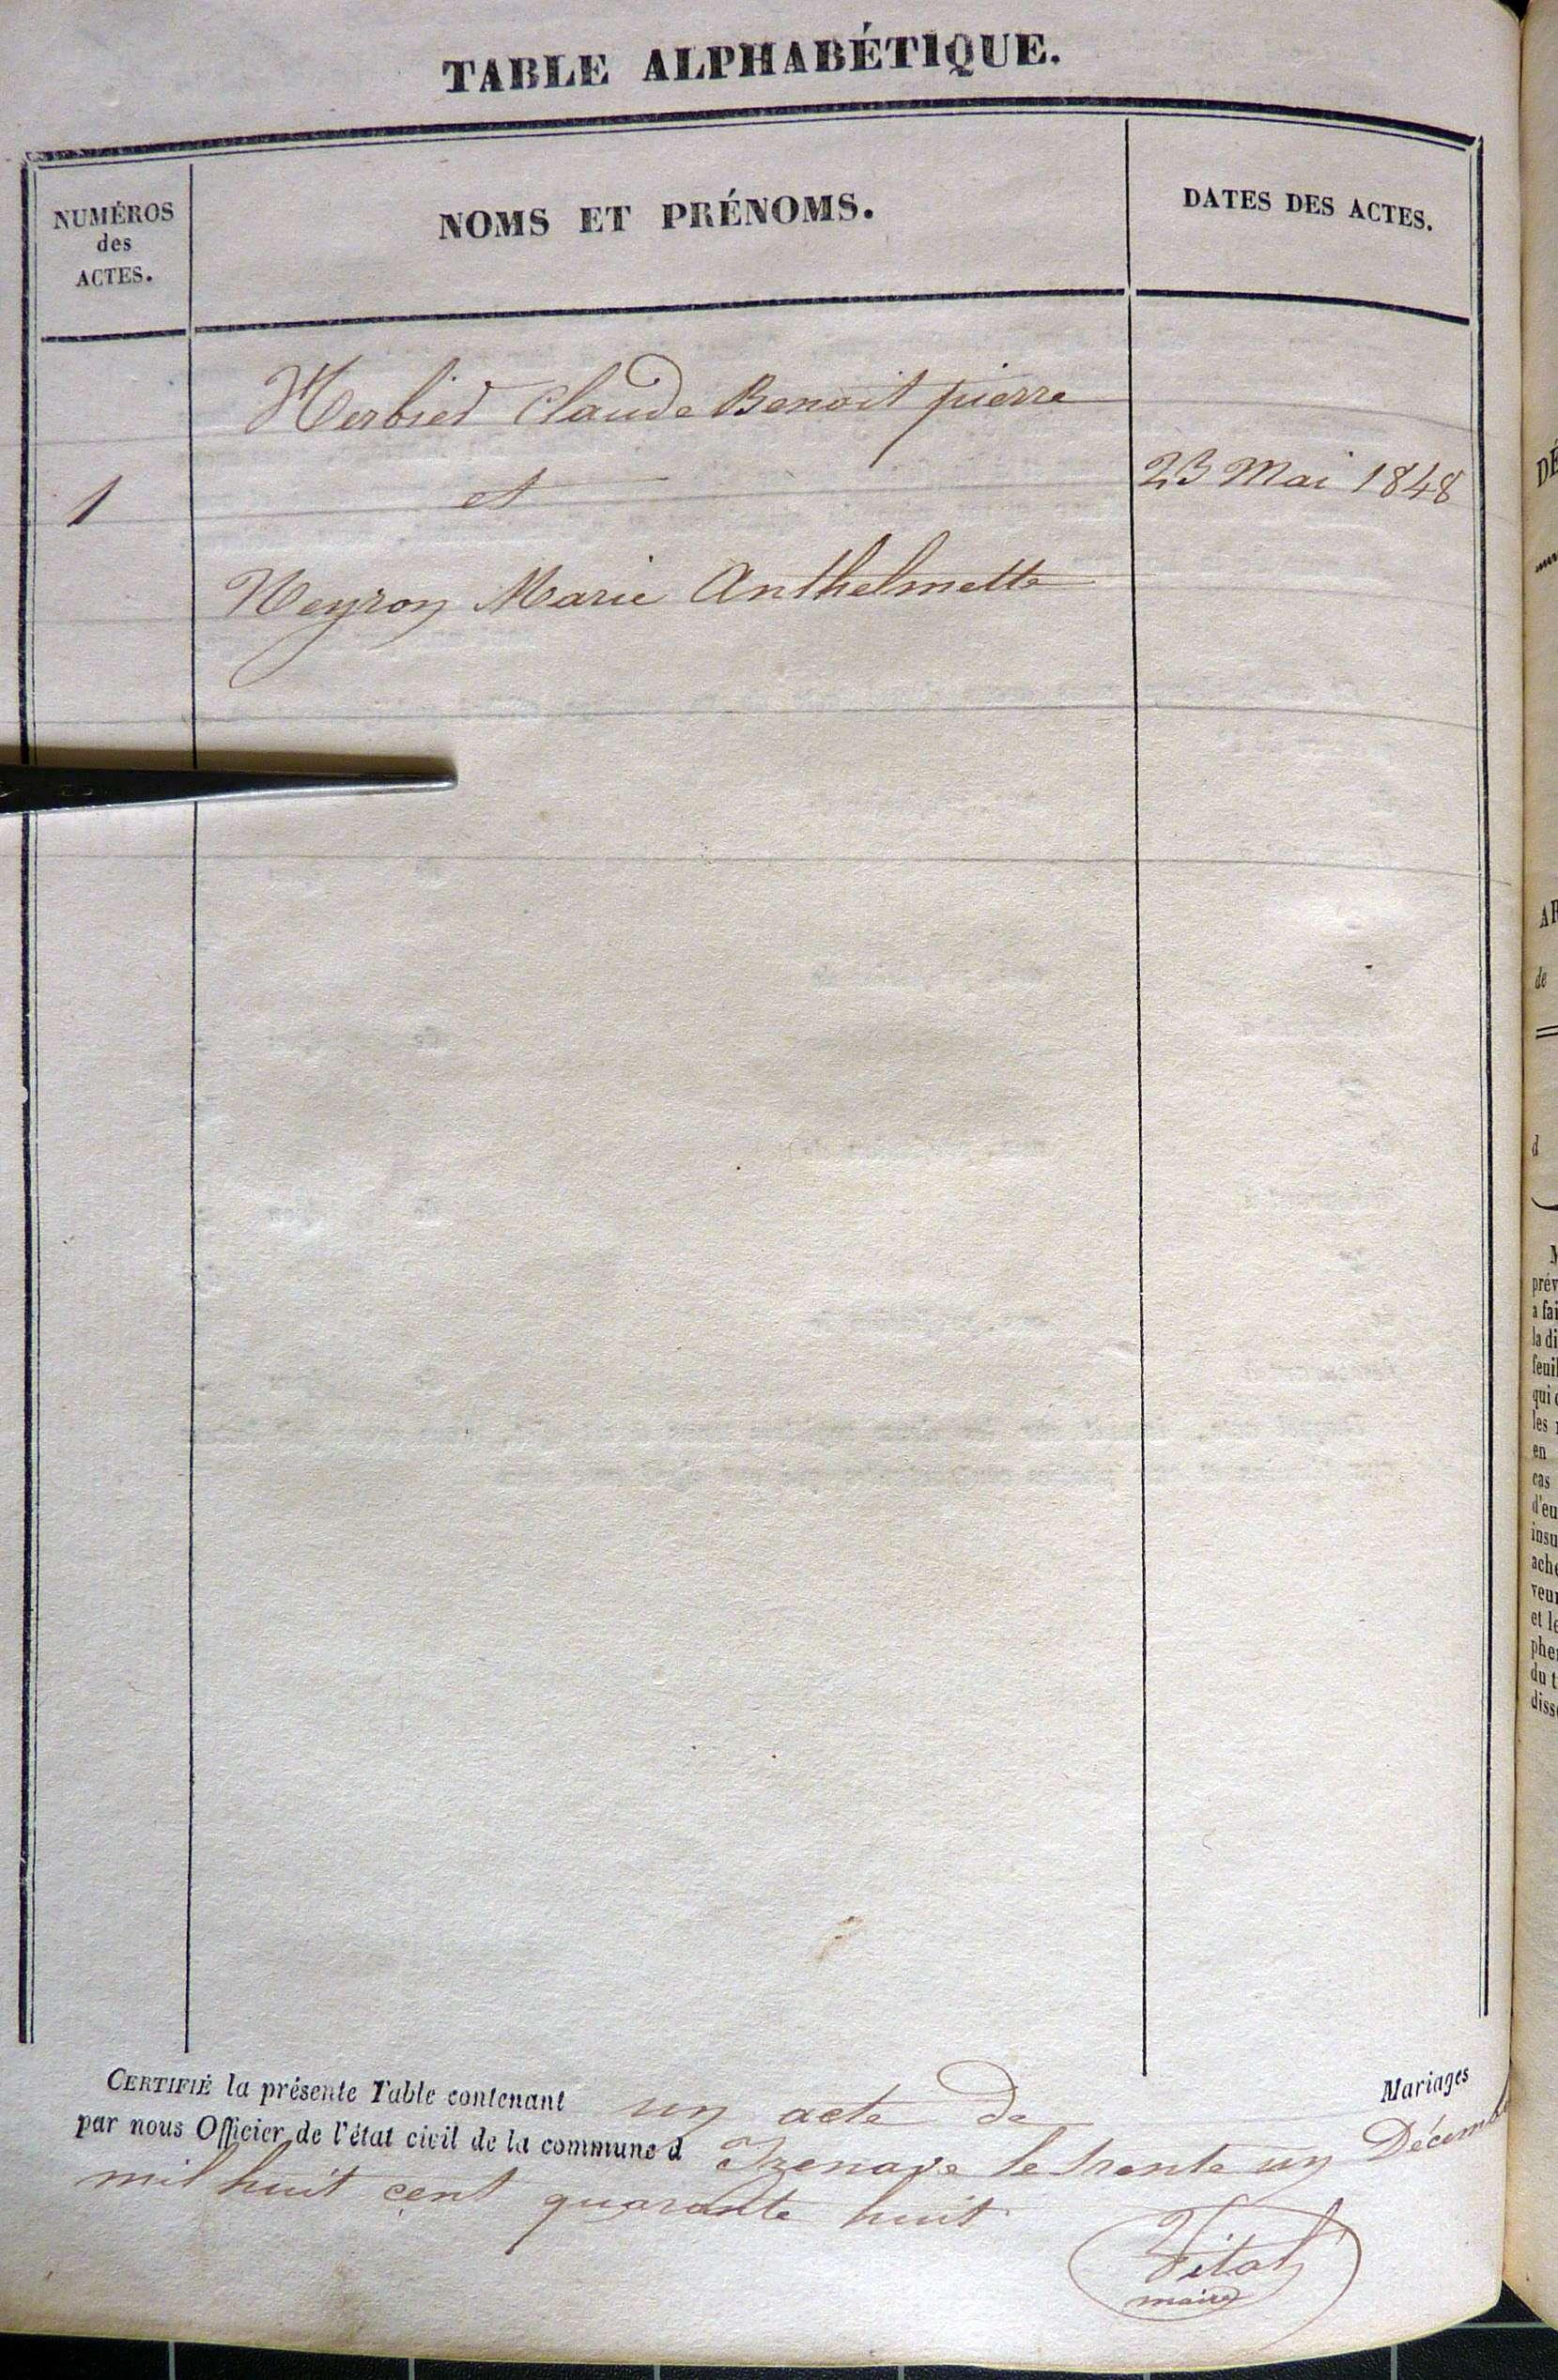 TABLE ALPHABÉTIQUE.
NUMÉROS
des
ACTES.
NOMS ET PRÉNOMS.
DATES DES ACTES.
Herbied Claude Benoit pierre
1
et
23 Mai 1848
Neyron Marie Anthelmette
CERTIFIÉ la présente Table contenant un acte de Mariages
par nous Officier de l'état civil de la commune d Izenave le trente un Décembre
mil huit cent quarante huit
Vital
maire
DÉ
de
d
prév
a fai
la di
feuil
les
en
cas
d'eu
insu
ache
veu
et le
phe
du t
diss